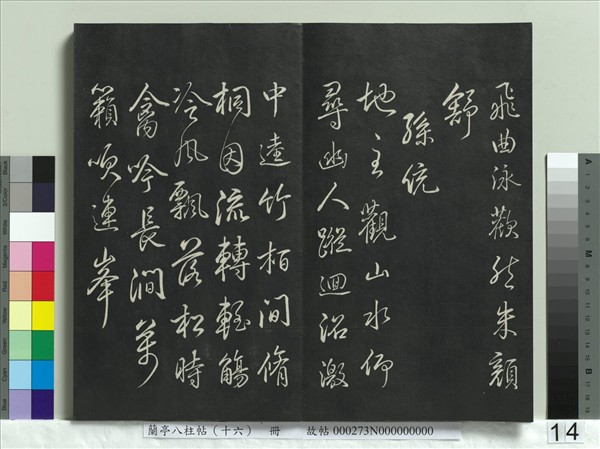 飛曲泳歡然朱顏
舒
孫統
地主觀山水仰
尋幽人蹤迴沼激
中逵竹栢間脩
桐因流轉輕觴
冷風飄落松時
禽吟長澗萬
籟吹連峯
蘭亭八柱帖（十六） 冊 故帖 000273N000000000
14
Black
3/Color
White
Magenta
Red
Yellow
Green
Cyan
Blue
A
M
B